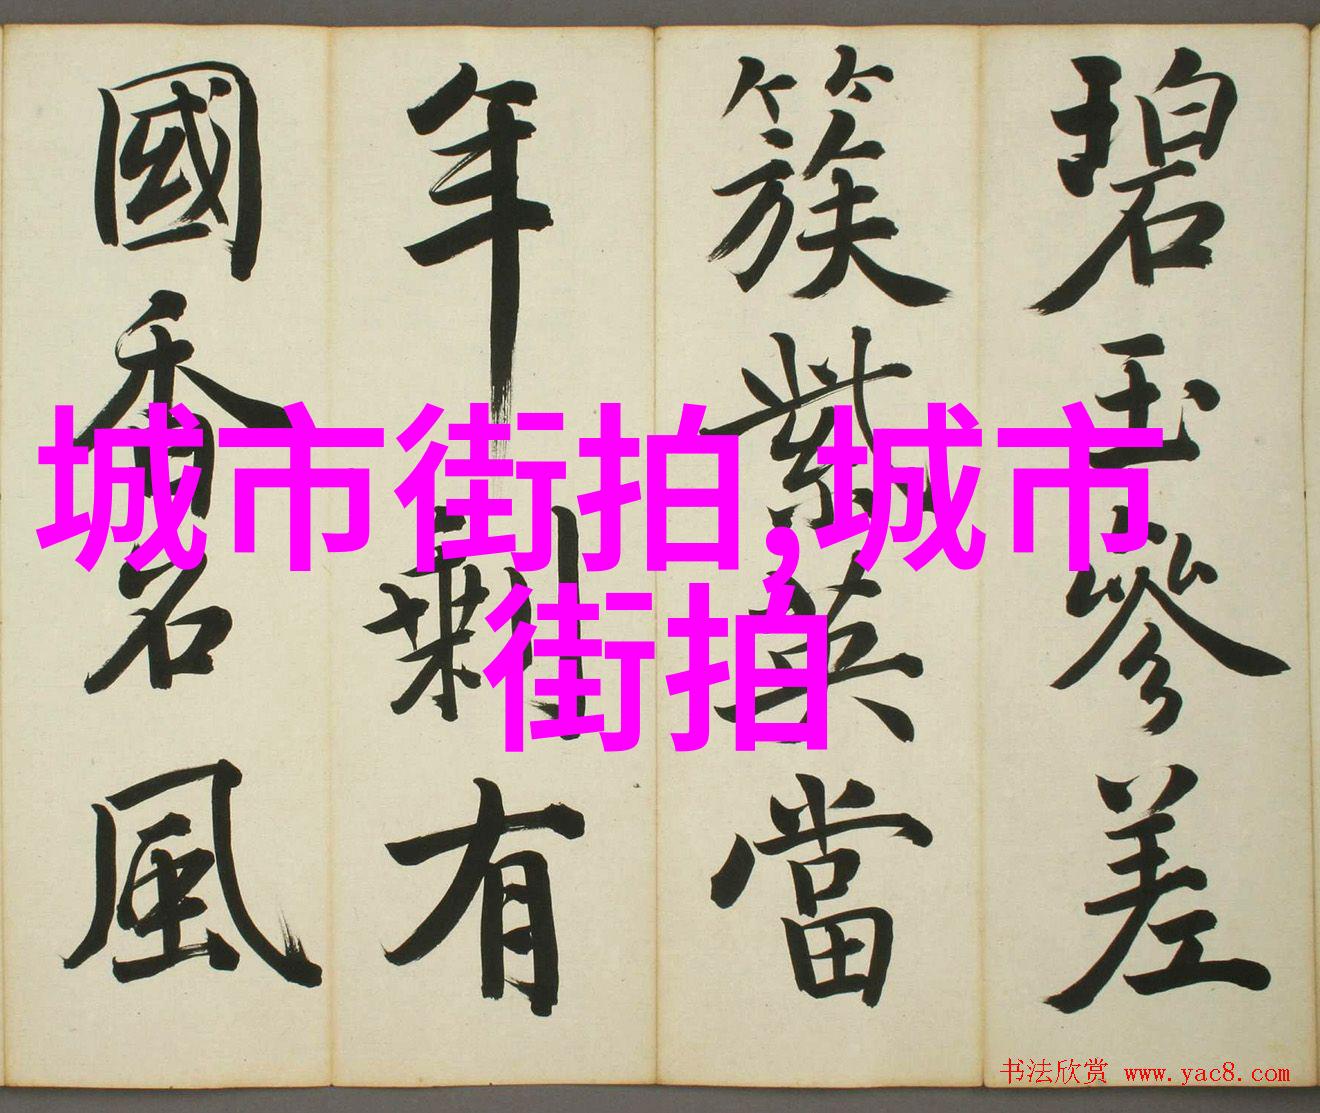 碧玉參差
簇紫英當
年剩有
國香名風
城市街拍,城市
街拍
书法欣赏 www.yac8.com